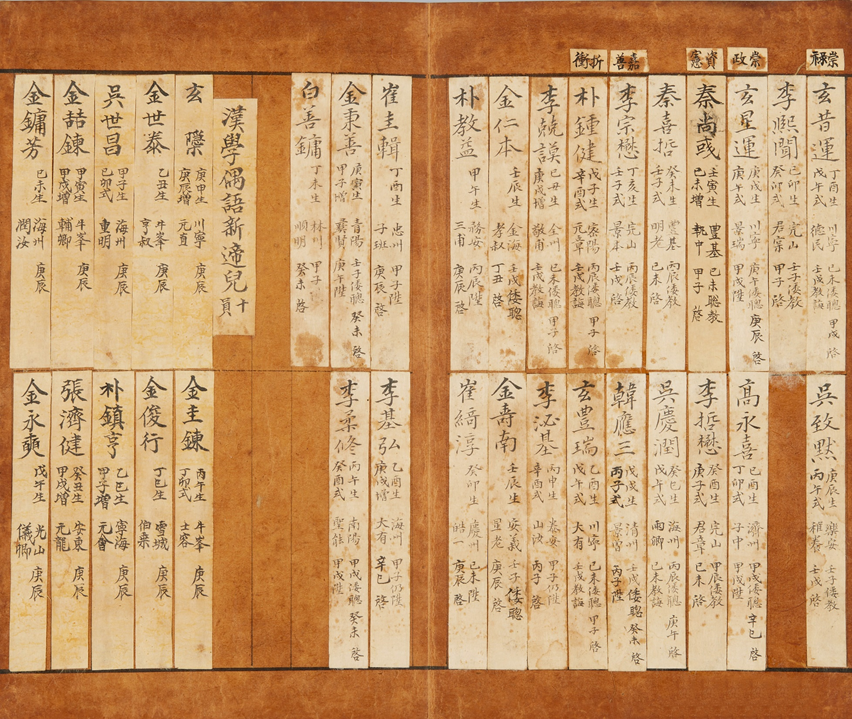 崇祿
崇政
資憲
嘉善
折衝
玄昔運 戊午式 川寧 德民 己未倭聰 壬戌教誨 甲戌 啓
李熙聞 己卯生 癸卯式 完山 君章 壬子倭教 甲子 啓
玄星運 庚戌生 庚午式 川寧 景瑞 庚午倭聰 甲戌陞 庚辰 啓
秦尚彧 壬寅生 己未增 豊基 執中 己未聰教 甲子 啓
秦喜哲 癸未生 壬子式 豊基 明老 丙辰倭教 己未 啓
李宗懋 丁亥生 壬子式 完山 景本 丙辰倭教 壬戌 啓
朴鍾健 戊子生 辛酉式 密陽 元章 丙辰倭聰 壬戌教誨 甲子 啓
李兢謨 己丑生 庚戌增 全州 敬甫 己未倭聰 壬戌教誨 甲子 啓
金仁本 壬辰生 金海 孝叔 壬戌倭聰 丁丑 啓
朴教益 甲午生 務安 三甫 丙辰陞 庚辰 啓
崔圭輯 丁酉生 忠州 子班 甲子陞 庚辰 啓
金秉善 庚寅生 甲子增 青陽 壬子倭聰 庚午陞 癸未 啓
白善鏞 丁未生 林川 順明 甲子 癸未 啓
漢學偶語新遞兒 十員
玄檃 庚申生 庚辰增 川寧 元直 庚辰
金世泰 乙丑生 牛峯 亨叔 庚辰
吳世昌 甲子生 己卯式 海州 重明 庚辰
金喆鍊 甲寅生 甲戌增 牛峯 輔卿 庚辰
金鏞芳 己未生 海州 潤汝 庚辰
吳致默 庚辰生 丙午式 樂安 稚春 壬子倭教 壬戌 啓
高永喜 己酉生 丁卯式 濟州 子中 甲戌倭聰 甲戌陞 辛巳 啓
李哲懋 癸酉生 庚子式 完山 君章 甲辰倭教 己未 啓
吳慶潤 癸巳生 戊午式 海州 雨卿 丙辰倭聰 己未教誨 庚午 啓
韓應三 戊戌生 丙子式 清州 壬戌倭聰 丙子陞 癸未 啓
玄豊瑞 乙酉生 丙午式 川寧 大有 己未倭聰 壬戌教誨 甲子 啓
李泌基 丙申生 辛酉式 泰安 山汝 甲子仍陞 丙子 啓
金壽南 壬辰生 安義 星老 壬子倭聰 庚辰 啓
崔綺淳 癸卯生 慶州 皓一 己未陞 庚辰 啓
李基弘 乙酉生 庚戌增 海州 大有 甲子仍陞 辛巳 啓
李柔修 丙午生 癸酉式 南陽 聖能 甲戌倭聰 甲戌陞 癸未 啓
金圭鍊 丙午生 丁卯式 牛峯 士容 庚辰
金俊行 丁巳生 雪城 伯乘 庚辰
朴鎮亨 乙巳生 甲子增 寧海 元會 庚辰
張濟健 癸丑生 甲戌增 安東 元龍 庚辰
金永奭 戊午生 光山 儀卿 庚辰